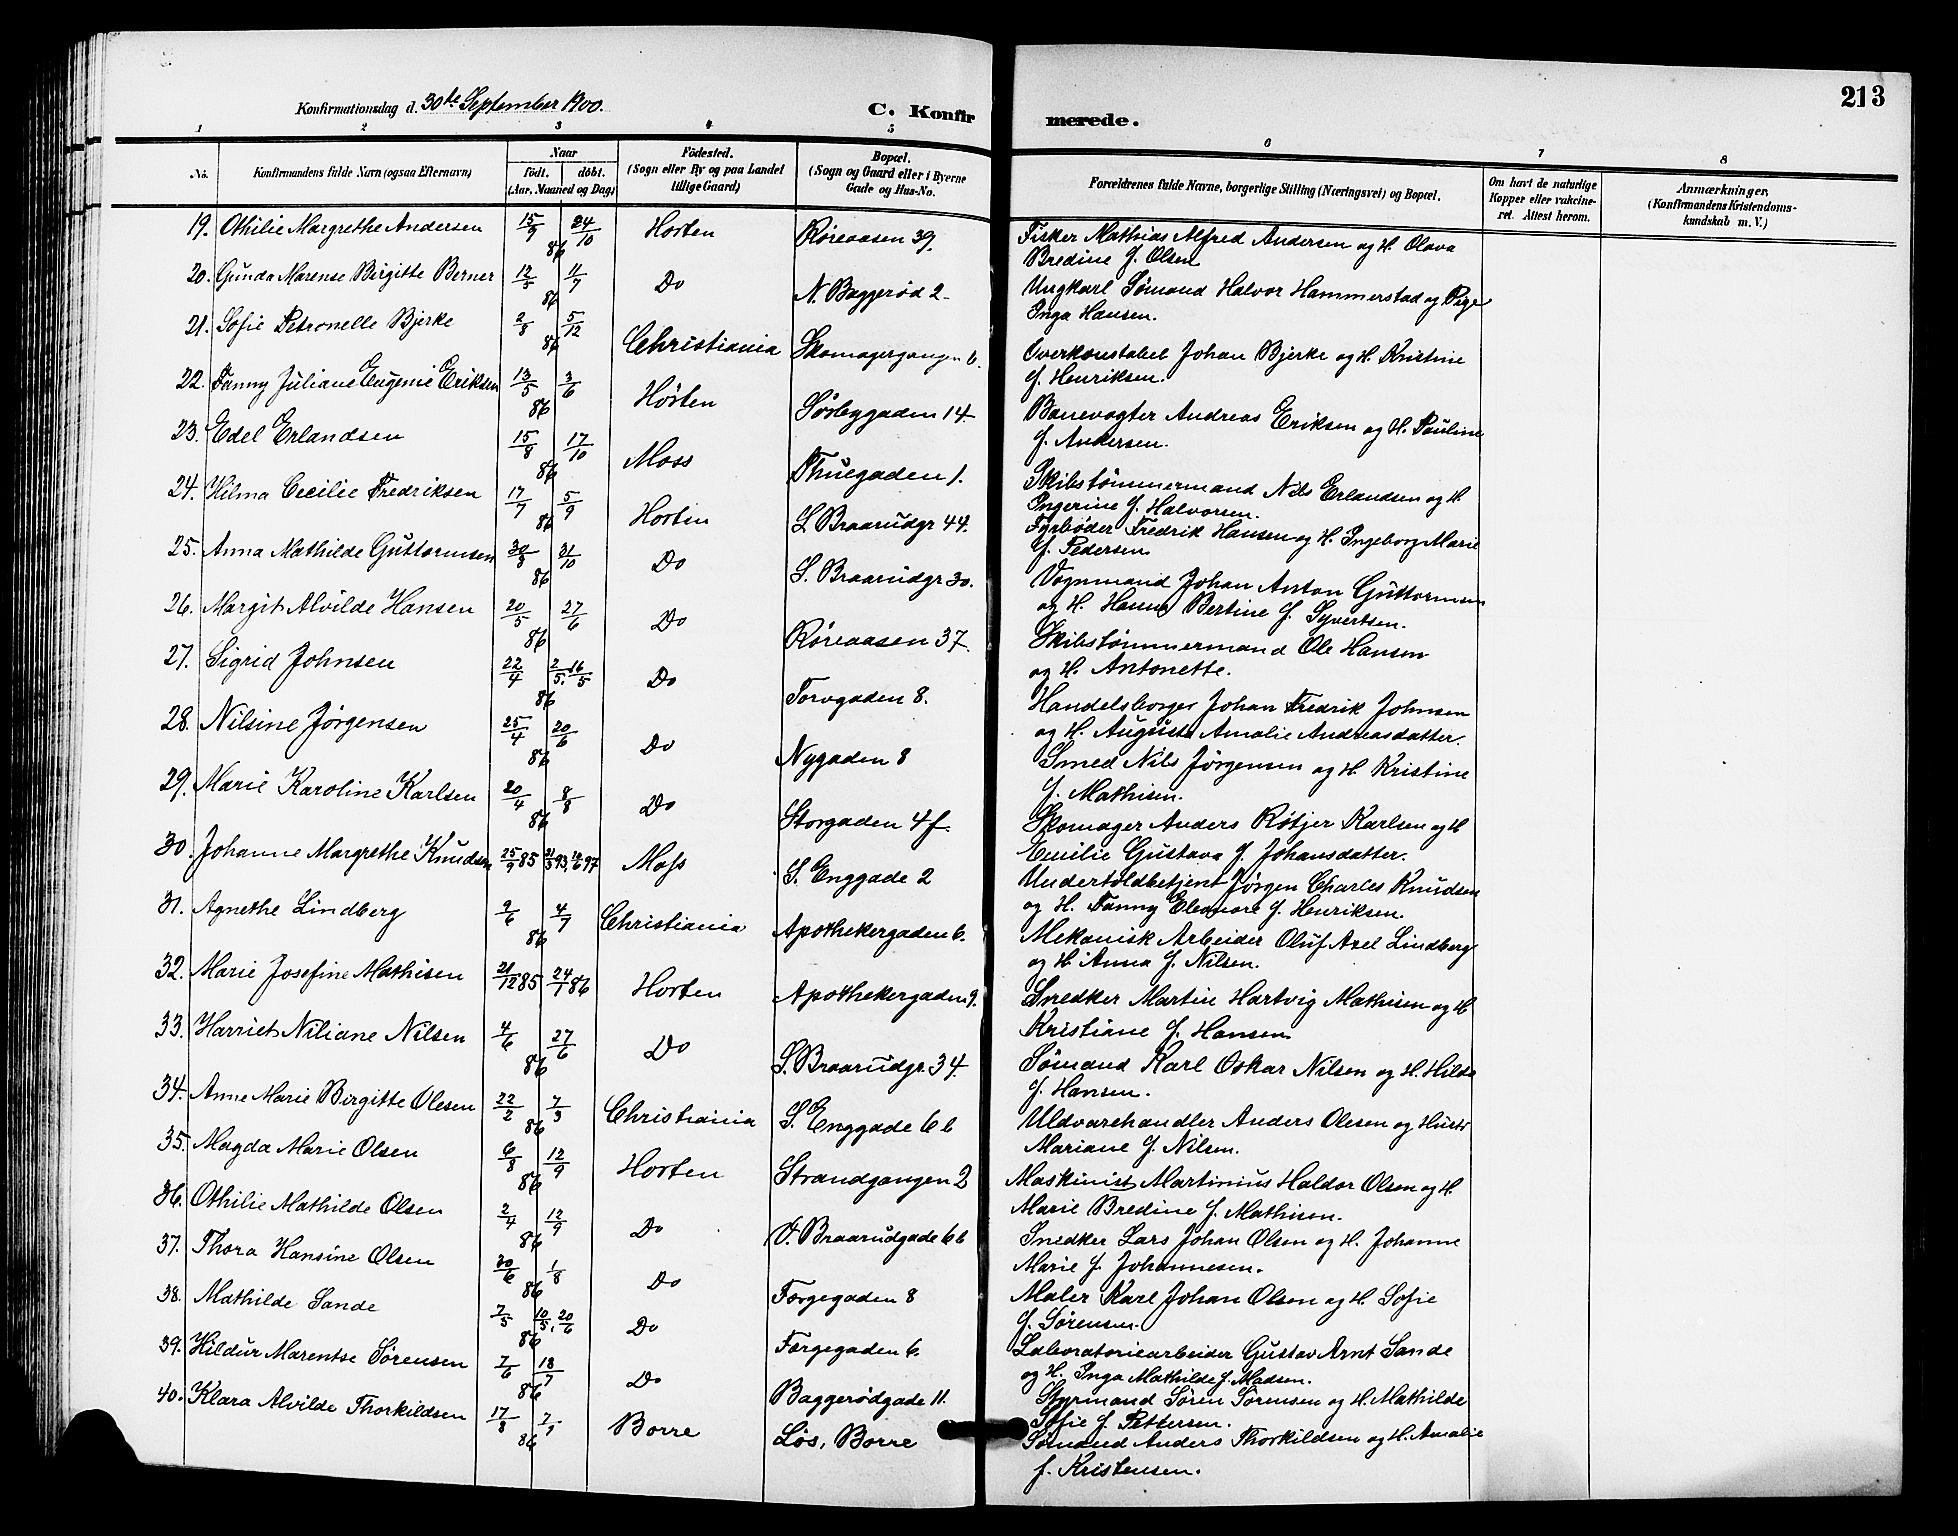 213
Konfirmationsdag d. 30te September 1900.
C. Konfirmerede.
1 2 3 4 5 6 7 8
No.
Konfirmandens fulde Navn (ogsaa Efternavn)
Naar
födt. döbt.
(Aar, Maaned og Dag)
Födested.
(Sogn eller By og paa Landet tillige Gaard)
Bopæl.
(Sogn og Gaard eller i Byerne Gade og Hus-No.
Forældrenes fulde Navne, borgerlige Stilling (Næringsvei) og Bopæl.
Om havt de naturlige Kopper eller vakcineret. Attest herom.
Anmærkninger,
(Konfirmandens Kristendomskundskab m. V.)
19. Othilie Margrethe Andersen 15/9 86 24/10 Horten Røreaasen 39. Fisker Mathias Alfred Andersen og H. Olava
Bredine f. Olsen
20. Gunda Marense Birgitte Berner 12/5 86 11/7 Do N. Baggerød 2. Ungkarl Sømand Halvor Hammerstad og Pige
Inga Hansen.
21. Sofie Petronelle Bjerke 2/8 86 5/12 Christiania Skomagergangen 6. Overkonstabel Johan Bjerke og H. Kristine
f. Henriksen.
22. Fanny Juliane Eugenie Eriksen 13/5 86 3/6 Horten Sørbygaden 14. Banevogter Andreas Eriksen og H. Pauline
f. Andersen.
23. Edel Erlandsen 15/8 86 17/10 Moss Thuegaden 1. Skibstømmermand Nils Erlandsen og H.
Ingerine f. Halvorsen.
24. Hilma Cecilie Fredriksen 17/7 86 5/9 Horten L. Braarudgr 44. Fyrbøder Fredrik Hansen og H. Ingeborg Marie
f. Pedersen
25. Anna Mathilde Guttormsen 30/8 86 31/10 Do S. Braarudgr 30. Vognmand Johan Anton Guttormsen
og H. Hanna Bertine f. Syvertsen.
26. Margit Alvilde Hansen 20/5 86 27/6 Do Røreaasen 37. Skibstømmermand Ole Hansen
og H. Antonette.
27. Sigrid Johnsen 22/4 86 2/5. 16/5 Do Torvgaden 8. Handelsborger Johan Fredrik Johnsen
og H. Augusta Amalie Andreasdatter.
28. Nilsine Jørgensen 25/4 86 20/6 Do Nygaden 8 Smed Nils Jørgensen og H. Kristine
f. Mathisen.
29. Marie Karoline Karlsen 20/4 86 8/8 Do Storgaden 4f. Skomager Anders Røtjer Karlsen og H
Cecilie Gustava f. Johansdatter.
30. Johanne Margrethe Knudsen 25/9 85 Moss S. Enggade 2 Undertoldbetjent Jørgen Charles Knudsen
og H. Fanny Eleonore f. Henriksen.
31. Agnethe Lindberg 9/6 86 4/7 Christiania Apothekergaden 6. Mekanisk Arbeider Oluf Axel Lindberg
og H. Anna f. Nilsen.
32. Marie Josefine Mathisen 21/12 85 24/1 86 Horten Apothekergaden 9. Snedker Martin Hartvig Mathisen og H
Kristiane f. Hansen
33. Harriet Niliane Nilsen 4/6 86 27/6 Do S. Braarudgr. 34. Sømand Karl Oskar Nilsen og H. Hilda
f. Hansen.
34. Anne Marie Birgitte Olesen 22/2 86 7/3 Christiania S. Enggade 6b Uldvarehandler Anders Olesen og Hustr
Mariane f. Nilsen.
35. Magda Marie Olsen 6/8 86 12/9 Horten Strandgangen 2 Maskinist Martinius Haldor Olsen og H.
Marie Bredine f. Mathisen.
36. Othilie Mathilde Olsen 2/4 86 12/9 Do V. Braarudgade 6b Snedker Lars Johan Olsen og H. Johanne
Marie f. Johannesen.
37. Thora Hansine Olsen 30/6 86 1/8 Do Færgegaden 8 Maler Karl Johan Olsen og H. Sofie
f. Sørensen.
38. Mathilde Sande 7/5 86 10/5. 20/6 Do Færgegaden 6. Laboratoriearbeider Gustav Arnt Sande
og H. Inga Mathilde f. Madsen.
39. Hildur Marentse Sørensen 7/6 86 18/7 Do Baggerødgade 11. Styrmand Søren Sørensen og H. Mathilde
Sofie f. Pettersen.
40. Klara Alvilde Thorkildsen 17/8 86 Borre Løs, Borre Sømand Anders Thorkildsen og H. Amalie
f. Kristensen.